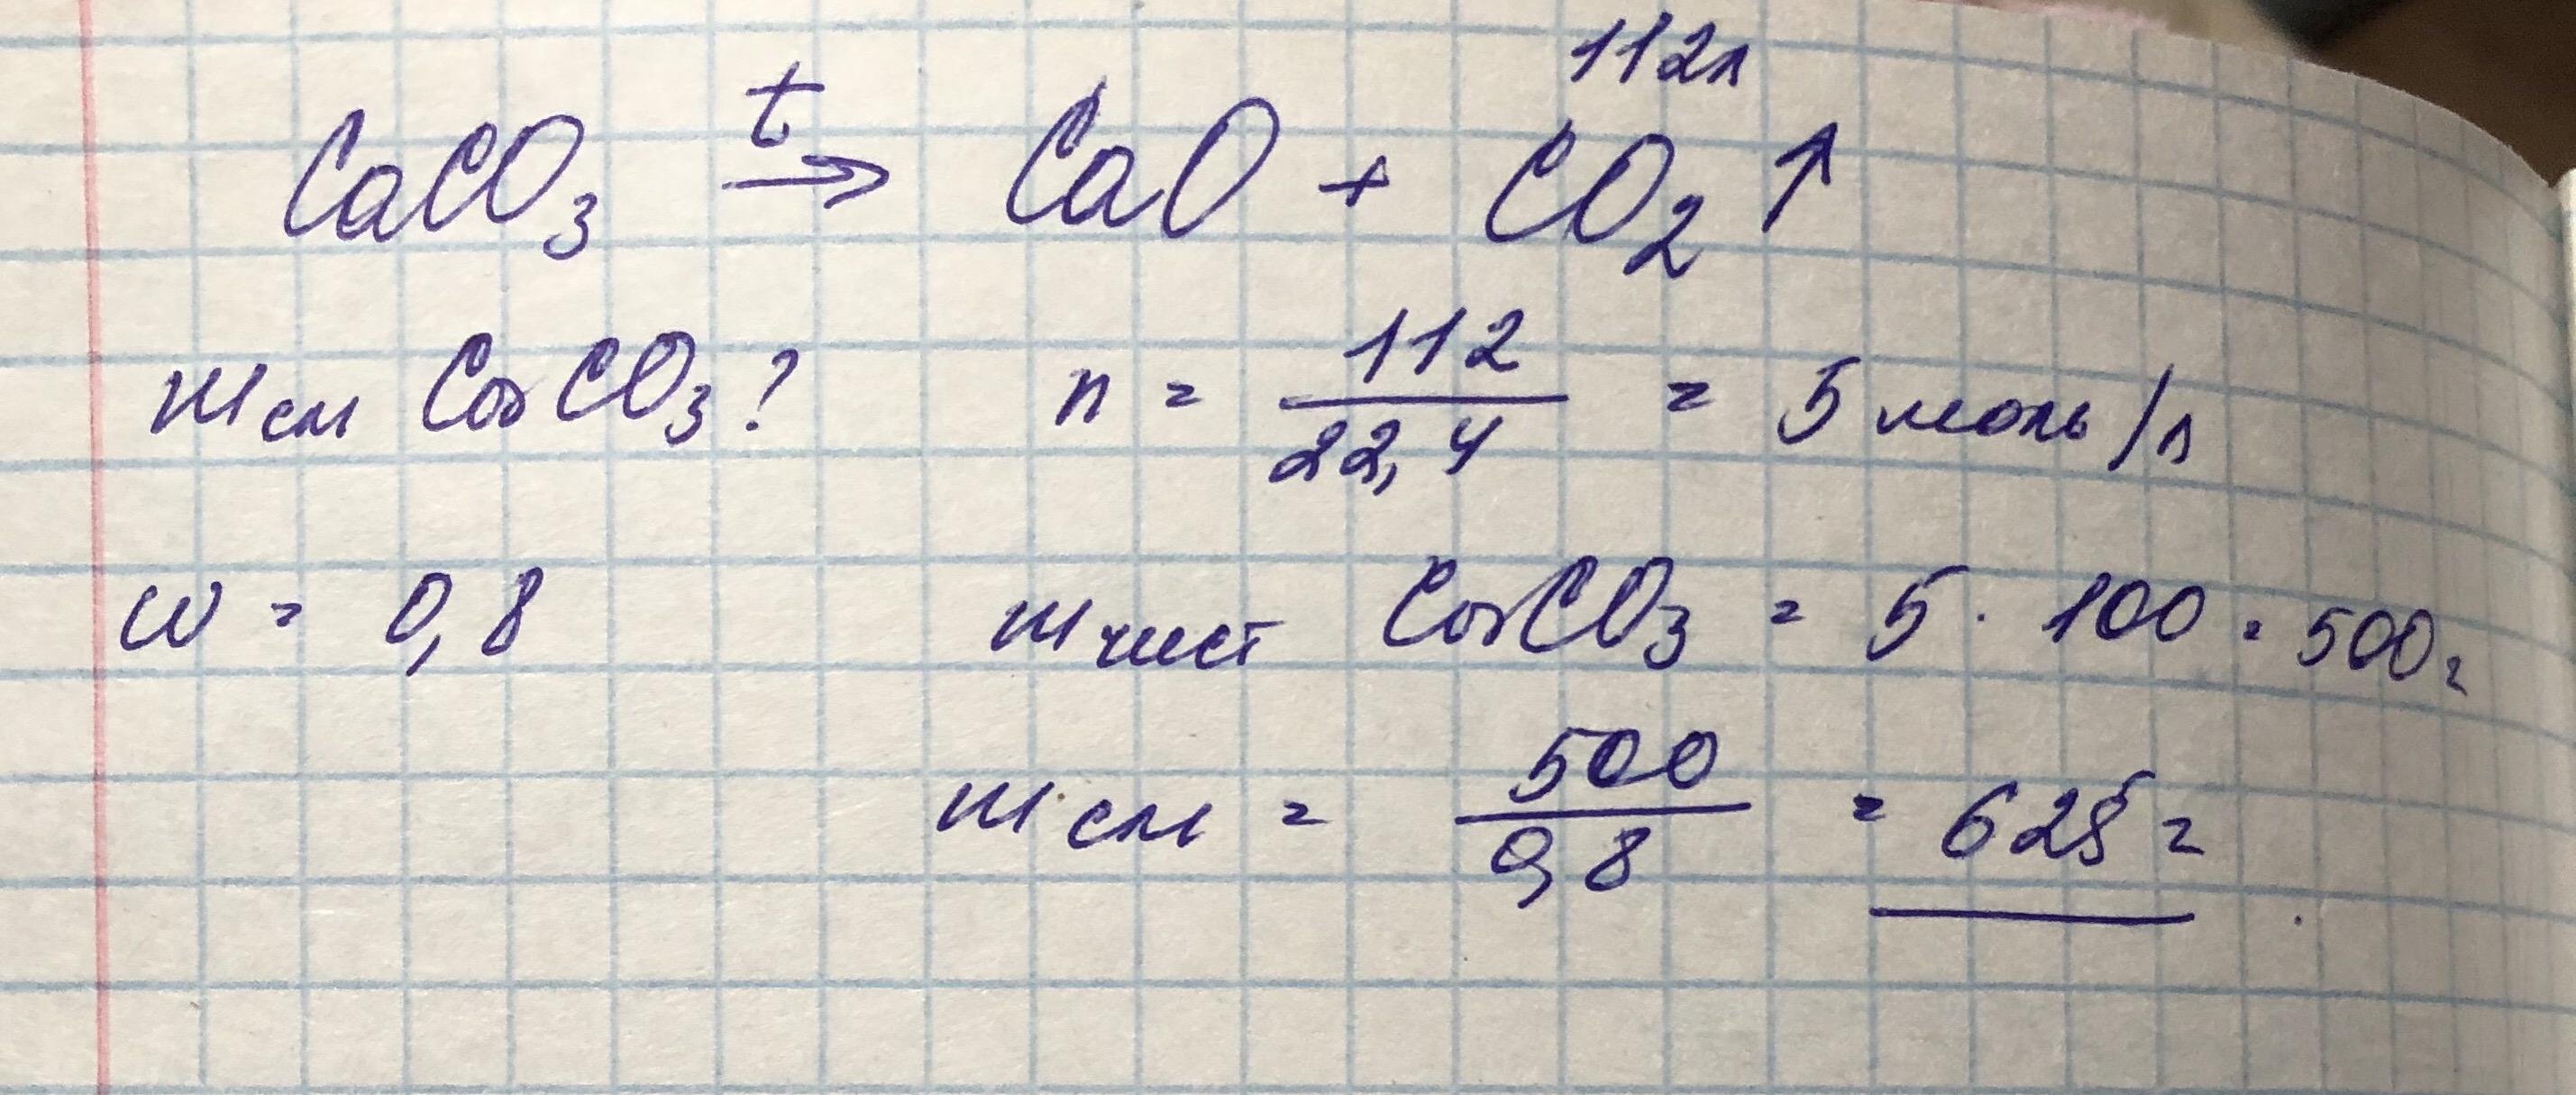 112л
CaCO₃ →ᵗ CaO + CO₂ ↑
m см CaCO₃ ? n = 112/22,4 = 5 моль/л
w = 0,8 m чист CaCO₃ = 5 · 100 = 500г
m см = 500/0,8 = 625г